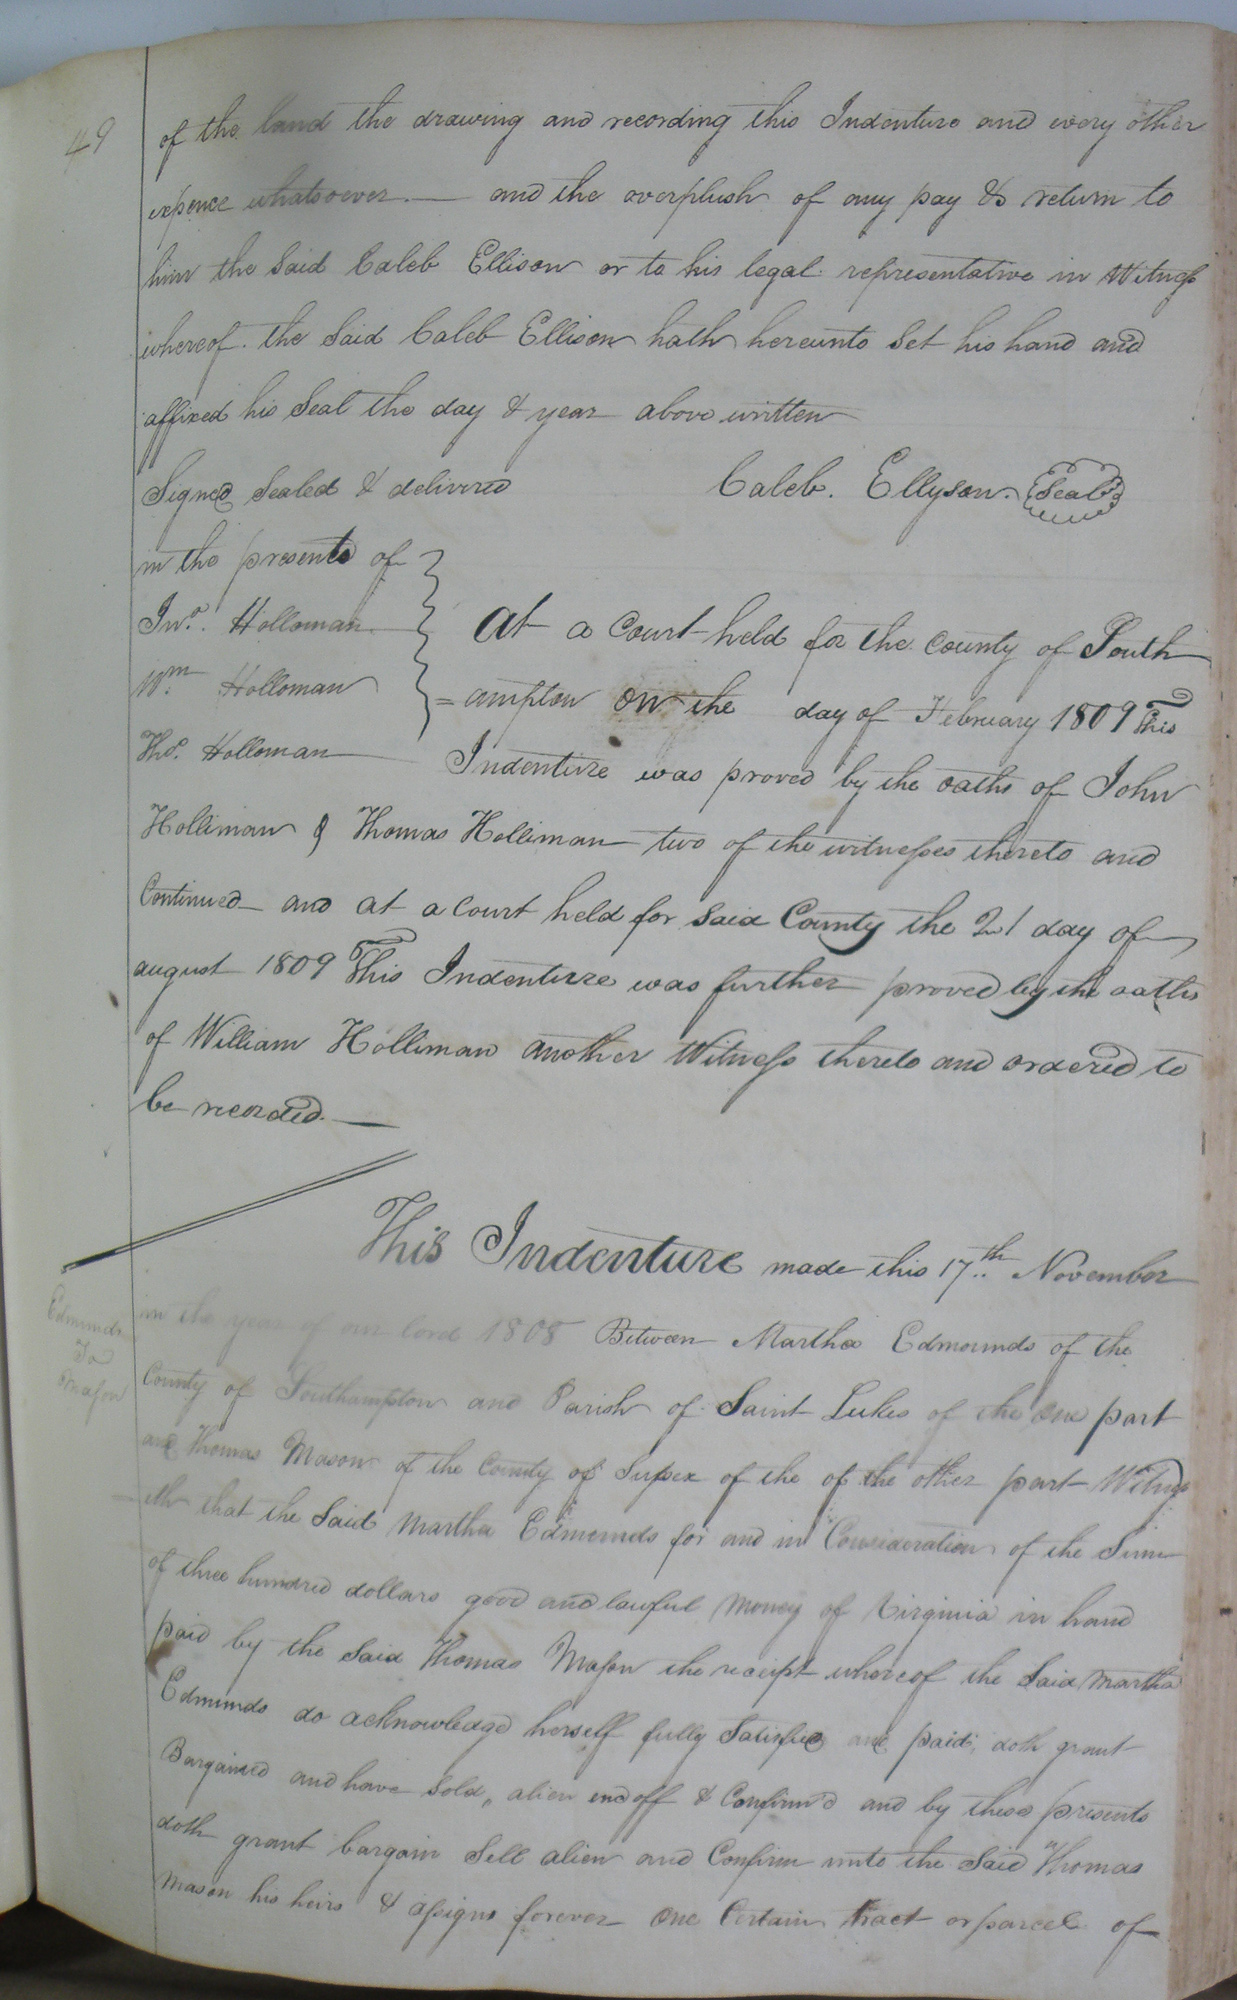 49
of the land the drawing and recording this Indenture and every other
expence whatsoever. — and the overplush of any pay & return to
him the Said Caleb Ellison or to his legal representative in Witness
whereof. the Said Caleb Ellison hath hereunto Set his hand and
affixed his Seal the day & year above written
Signed Sealed & delivered Caleb. Ellyson. Seal
in the presents of
Jno. Holloman
Wm. Holloman
Tho. Holloman
At a Court held for the County of South
=ampton on the day of February 1809 This
Indenture was proved by the oaths of John
Holliman & Thomas Holliman two of the witnesses thereto and
Continued and at a Court held for Said County the 21 day of
august 1809 This Indenture was further proved by the oaths
of William Holliman another Witness thereto and ordered to
be recorded. —
This Indenture made this 17th November
Edmunds
To
Mason
in the year of our lord 1808 Between Martha Edmounds of the
County of Southampton and Parish of Saint Lukes of the one part
and Thomas Mason of the County of Sussex of the of the other part Witness
eth that the Said Martha Edmunds for and in Consideration of the Sum
of three hundred dollars good and lawful Money of Virginia in hand
paid by the Said Thomas Mason the receipt whereof the Said Martha
Edmunds do acknowledge herself fully Satisfied and paid, doth grant
Bargained and have Sold, alien endoff & Confirm'd and by these presents
doth grant bargain Sell alien and Confirm unto the Said Thomas
Mason his heirs & assigns forever one Certain tract or parcel of